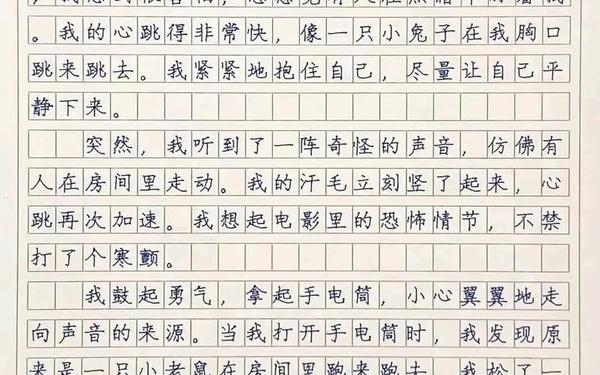 。我的心跳得非常快，像一只小兔子在我胸口
跳来跳去。我紧紧地抱住自己，尽量让自己平
静下来。
突然，我听到了一阵奇怪的声音，仿佛有
人在房间里走动。我的汗毛立刻竖了起来，心
跳再次加速。我想起电影里的恐怖情节，不禁
打了个寒颤。
我鼓起勇气，拿起手电筒，小心翼翼地走
向声音的来源。当我打开手电筒时，我发现原
来是一只小老鼠在房间里跑来跑去。我松了一